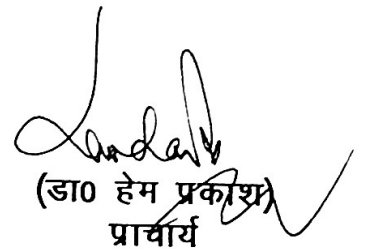 (डा0 हेम प्रकाश)
प्राचार्य